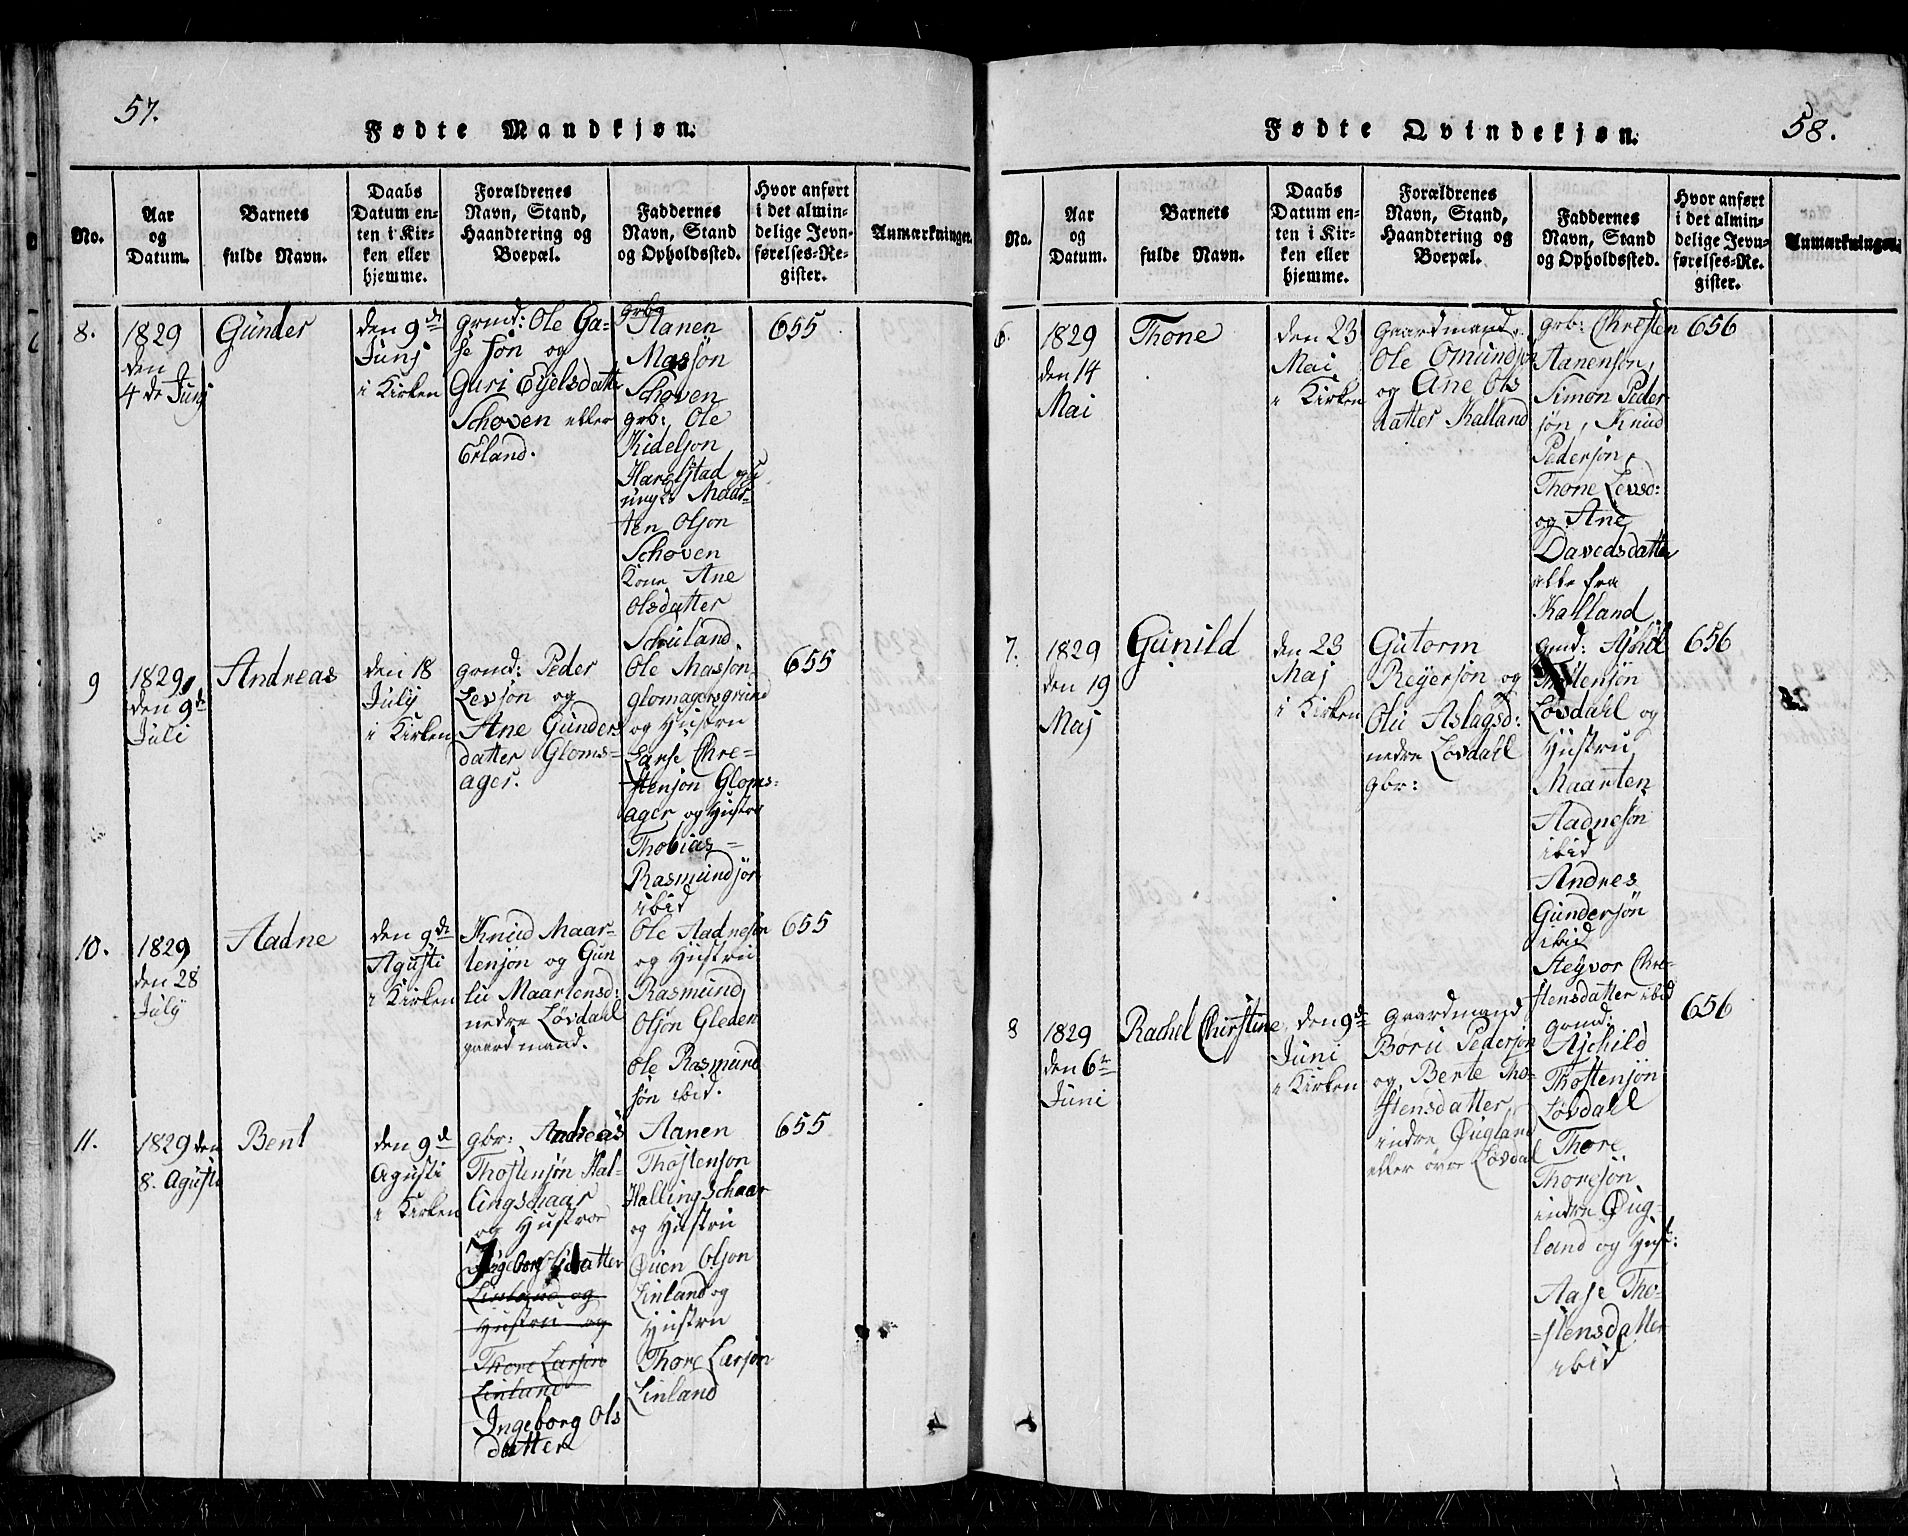 57.
Fødte Mandkjøn.
No.
Aar
og
Datum.
Barnets
fulde Navn.
Daabs
Datum en-
ten i Kir-
ken eller
hjemme.
Forældrenes
Navn, Stand,
Haandtering og
Boepæl.
Faddernes
Navn, Stand
og Opholdssted.
Hvor anført
i det almin-
delige Jevn-
førelses-Re-
gister.
Anmærkninger.
8.
1829
den
4 de Junj
Günder
den 9de
Junj
i Kirken
grmd: Ole Ga-
se søn og
Guri Eyelsdatte
Schoven eller
Erland.
grbg
Aanen
Massøn
Schoven
grb: Ole
Kidelson
Harelstad og
ungk Maar-
ten Olson
Schoven
Kone Ane
Olsdatter
Schuland.
655
9
1829
den 9de
Juli
Andreas
den 18
July
i Kirken
grmd: Peder
Levsøn og
Ane Günders
datter Gloms-
ager.
Ole Massøn
Glomagersgrund
og Hustru
Larse Chre-
stensøn Gloms-
ager og Hustru
Thobias
Rasmundsør
ibid
655
10.
1829
den 28
July
Aadne
den 9de
Agusti
i Kirken
Knud Maar-
tensøn og Gun
lu Maartensd:
nedre Løvdahl
gaard mand.
Ole Aadnesøn
og Hustru
Rasmund
Olson Gleden
Ole Rasmund
søn ibid.
655
11.
1829 den
8. Agusti
Bent
den 9d
Agusti
i Kirken
gbr: Andreas
Thostensøn Hal-
lingschaar
og Hustroe
Ingeborg Olsdatter
Linland og
Hustru og
Thore Larsøn
Linland
Ingeborg Ols
datter
Aanen
Thostenson
Hallingschaar
og Hustru
Øuen Olson
Linland og
Hustru
Thore Larsøn
Linland
655
58.
Fødte Qvindekjøn.
No.
Aar
og
Datum.
Barnets
fulde Navn.
Daabs
Datum en-
ten i Kir-
ken eller
hjemme.
Forældrenes
Navn, Stand,
Haandtering og
Boepæl.
Faddernes
Navn, Stand
og Opholdssted.
Hvor anført
i det almin-
delige Jevn-
førelses-Re-
gister.
Anmærkninger.
6.
1829
den 14
Mai
Thone
den 23
Mai
i Kirken
Gaardmand
Ole Omundsøn
og Ane Ols
datter Kalland
grb: Chresten
Aanensøn,
Simon Peder
søn, Knud
Pedersøn,
Thone Levsd:
og Ane
Davedsdatter
alle fra
Kalland
656
7.
1829
den 19
Maj
Gunild
den 23
Maj
i Kirken
Gutorm
Reyersøn og
Olu Aslagsd:
nedre Løvdahl
gbr:
gmd: Ajskil
Thostensøn
Løvdahl og
Hustru
Maarten
Aadnesøn
ibid
Andres
Gundersøn
ibid
Steyvor Chre-
stensdatter ibid
656
8
1829
den 6te
Juni
Rachel Chirstine
den 9de
Juni
i Kirken
Gaardmand
Børu Pedersøn
og Berte Tho-
stensdatter
indre Øugland
eller övre Løvdal
grmd:
Ajchild
Thostensøn
Løvdahl
Thore
Thoresøn
indre Øug-
land og Hust:
Aase Tho-
=stensdatter
ibid
656